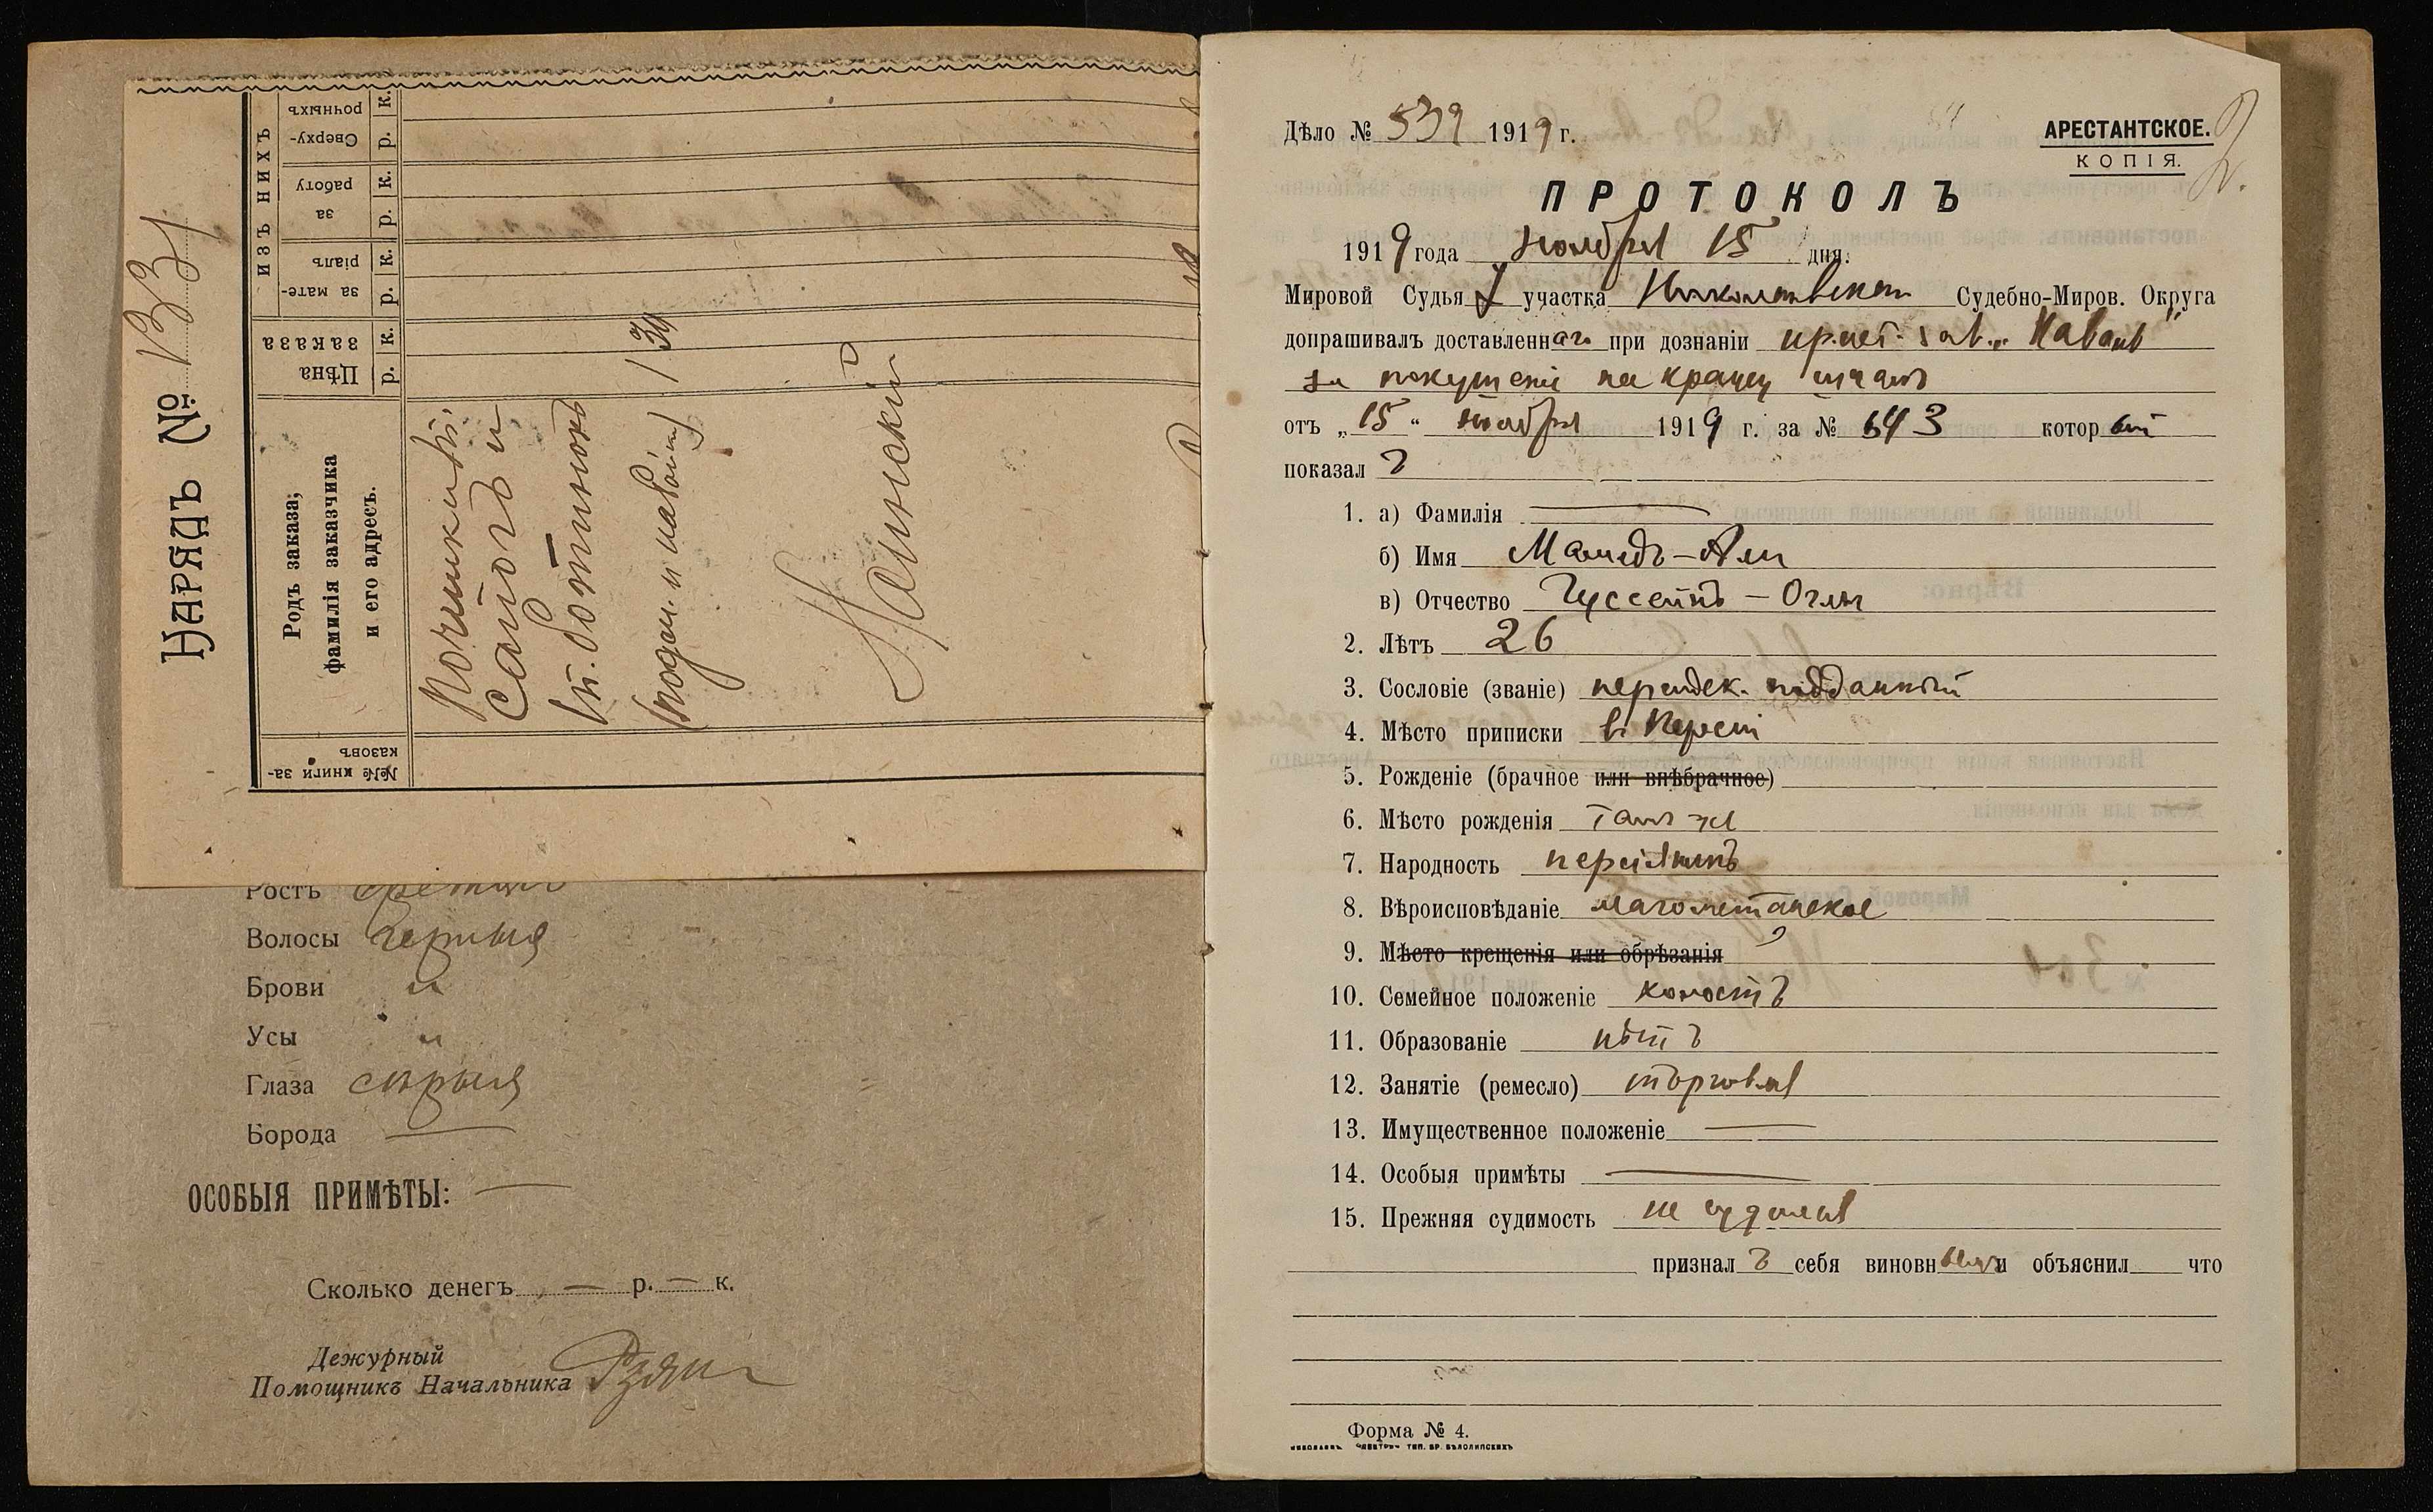 НАРЯДЪ № 1331
№№ книги за-
казовъ
Родъ заказа;
фамилія заказчика
и его адресъ.
Цѣна
заказа
р. к.
ИЗЪ НИХЪ
за мате-
ріалъ
р. к.
за
работу
р. к.
Сверху-
рочныхъ
р. к.
Починка
сапогъ и
ботинокъ
Ростъ средній
Волосы черныя
Брови "
Усы "
Глаза сѣрыя
Борода —
ОСОБЫЯ ПРИМѢТЫ: —
Сколько денегъ — р. — к.
Дежурный
Помощникъ Начальника
2.
Дѣло № 539 1919 г.
АРЕСТАНТСКОЕ.
КОПІЯ.
ПРОТОКОЛЪ
1919 года Ноября 15 дня.
Мировой Судья участка Николаевскаго Судебно-Миров. Округа
допрашивалъ доставленнаго при дознаніи зав. „Наваль"
за покушеніе на кражу
отъ „15" ноября 1919 г. за № 643 который
показалъ
1. а) Фамилія —
б) Имя Мамедъ-Али
в) Отчество Гуссейнъ-Оглы
2. Лѣтъ 26
3. Сословіе (званіе) персидск. подданный
4. Мѣсто приписки въ Персіи
5. Рожденіе (брачное или внѣбрачное)
6. Мѣсто рожденія Тамъ же
7. Народность персіянинъ
8. Вѣроисповѣданіе магометанское
9. Мѣсто крещенія или обрѣзанія
10. Семейное положеніе холостъ
11. Образованіе нѣтъ
12. Занятіе (ремесло) торговля
13. Имущественное положеніе —
14. Особыя примѣты —
15. Прежняя судимость не судился
призналъ себя виновнымъ и объяснил что
Форма № 4.